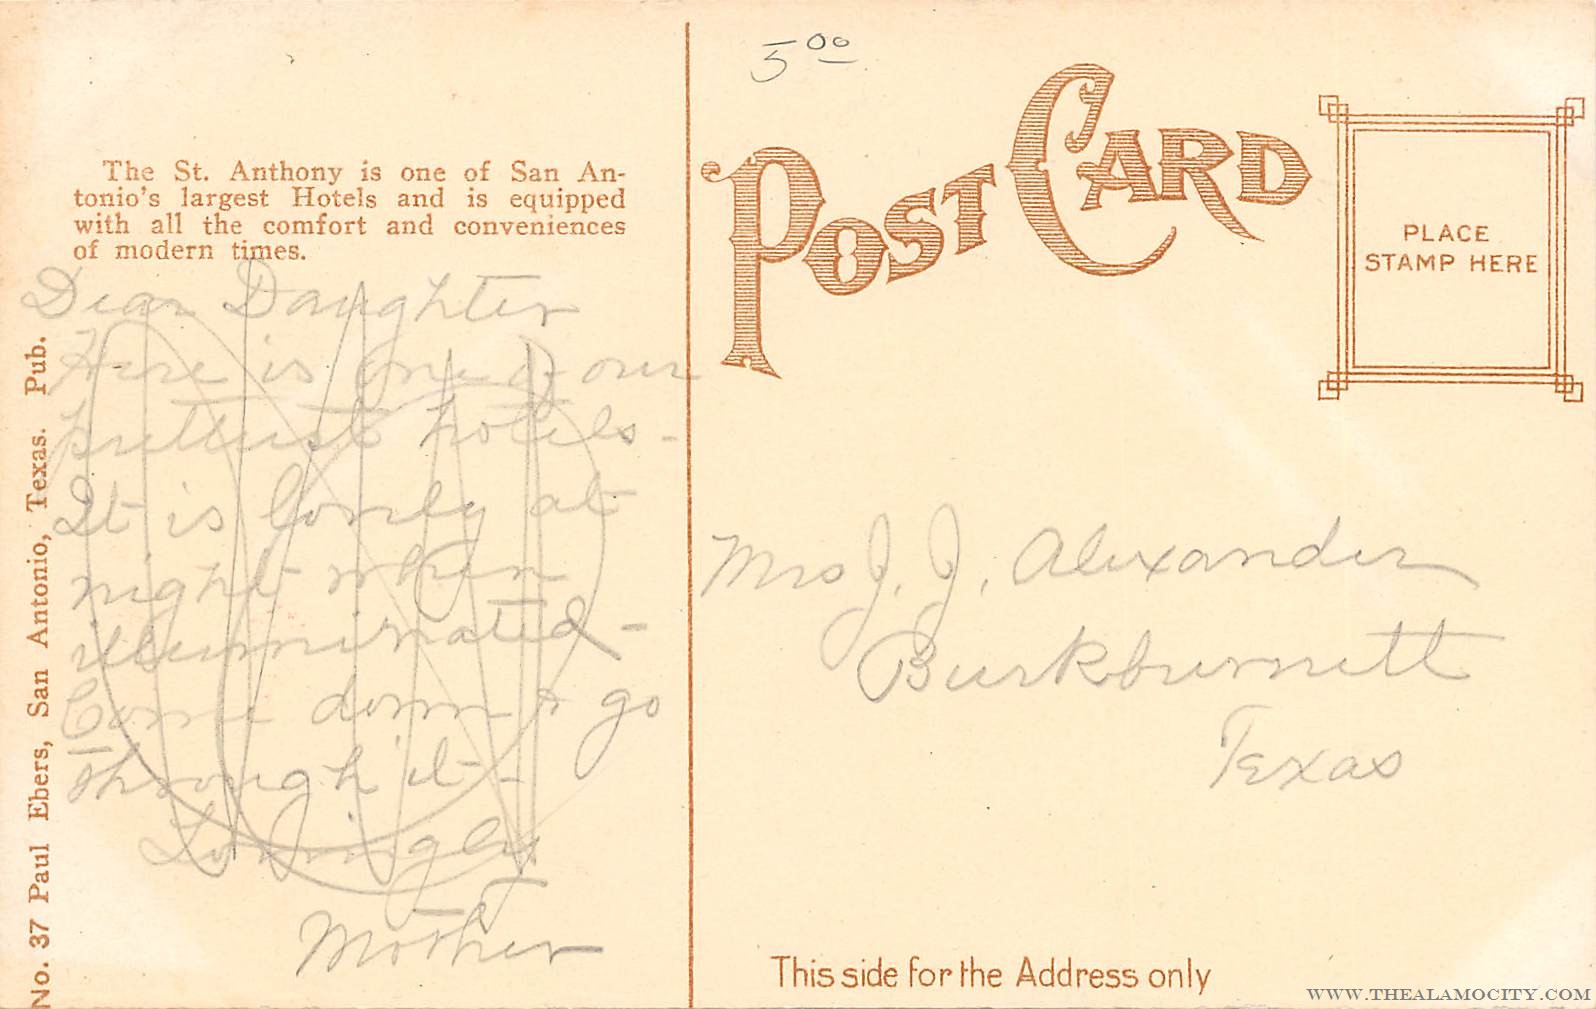 The St. Anthony is one of San An-
tonio's largest Hotels and is equipped
with all the comfort and conveniences
of modern times.
Dear Daughter
Here is one of our
prettiest hotels-
It is lovely at
night when
illuminated-
Come down & go
through it-
Lovingly
Mother
No. 37 Paul Ebers, San Antonio, Texas. Pub.
5 00
POST CARD
PLACE
STAMP HERE
Mrs J. J. Alexander
Burkburnett
Texas
This side for the Address only
WWW.THEALAMOCITY.COM